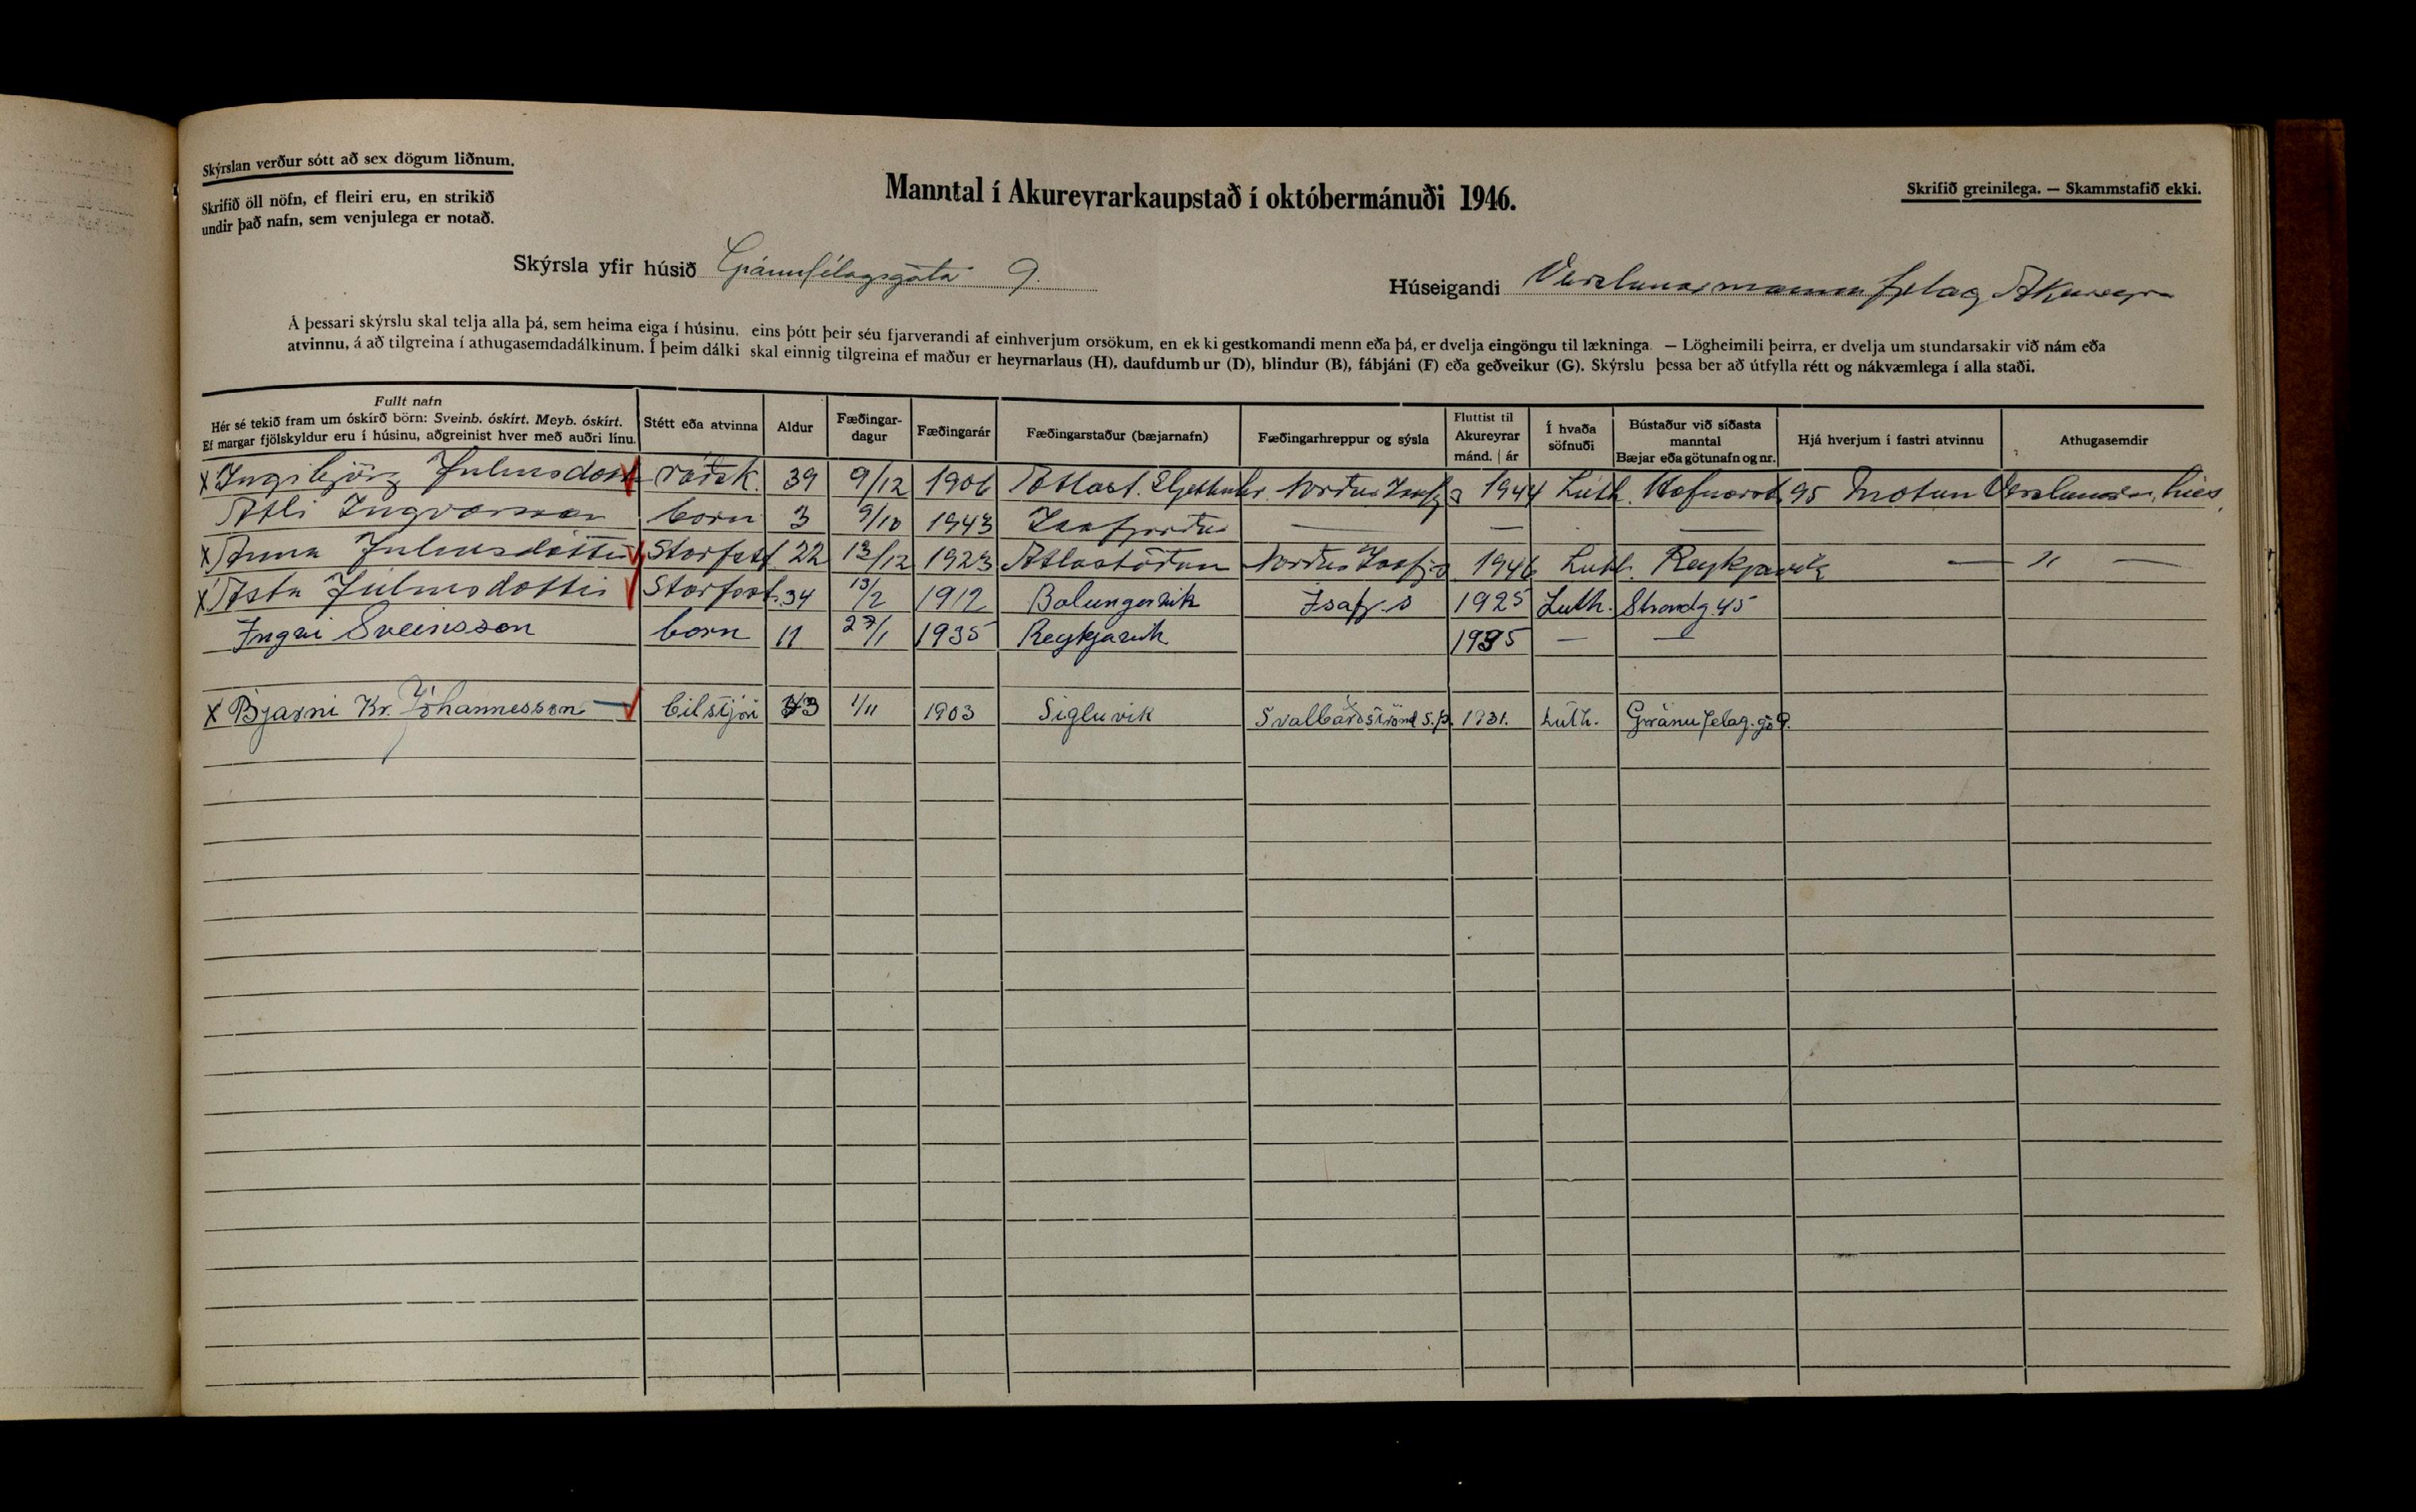 Skýrslan verður sótt að sex dögum liðnum.
Skrifið öll nöfn, ef fleiri eru, en strikið
undir það nafn, sem venjulega er notað.
Manntal í Akureyrarkaupstað í októbermánuði 1946.
Skrifið greinilega. — Skammstafið ekki.
Skýrsla yfir húsið Gránufélagsgata 9.
Húseigandi Verslunarmannafjelag Akureyra
Á þessari skýrslu skal telja alla þá, sem heima eiga í húsinu, eins þótt þeir séu fjarverandi af einhverjum orsökum, en ekki gestkomandi menn eða þá, er dvelja eingöngu til lækninga. — Lögheimili þeirra, er dvelja um stundarsakir við nám eða
atvinnu, á að tilgreina í athugasemdadálkinum. Í þeim dálki skal einnig tilgreina ef maður er heyrnarlaus (H), daufdumbur (D), blindur (B), fábjáni (F) eða geðveikur (G). Skýrslu þessa ber að útfylla rétt og nákvæmlega í alla staði.
Fullt nafn
Hér sé tekið fram um óskírð börn: Sveinb. óskírt. Meyb. óskírt.
Ef margar fjölskyldur eru í húsinu, aðgreinist hver með auðri línu.
Stétt eða atvinna
Aldur
Fæðingar-
dagur
Fæðingarár
Fæðingarstaður (bæjarnafn)
Fæðingarhreppur og sýsla
Fluttist til
Akureyrar
mánd. | ár
Í hvaða
söfnuði
Bústaður við síðasta
manntal
Bæjar eða götunafn og nr.
Hjá hverjum í fastri atvinnu
Athugasemdir
x Ingibjörg Juliusdott ráðsk. 39 9/12 1906 Atlast. Norður Isafj s 1944 Lúth. Hafnarst 95 Mötun
Atli Ingvarsson born 3 9/10 1943 Isafjorður — — —
x Anna Juliusdóttir Starfsst 22 13/12 1923 Atlastöðum Norður Isafj s 1946 Luth. Reykjavik — " —
x Asta Júliusdottir Starfsst. 34 13/2 1912 Bolungarvik Isafj. s 1925 Luth. Strandg. 45
Ingvi Sveinsson born 11 27/1 1935 Reykjavik 1935 — —
x Bjarni Kr. Jóhannesson bilstjóri 43 1/11 1903 Sigluvik Svalbarðsströnd S.þ. 1931. Lúth. Gránufelag. g. 9.